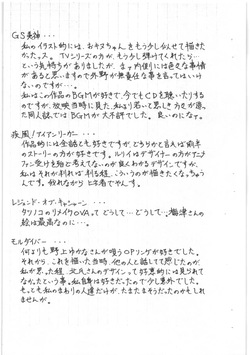 GS美神・・・
私のイラスト的には、おキヌちゃんをもう少し似せて描きた
かったス。TVシリーズの方が、もう少し弾けてくれたら・・・
という気持ちがありましたが、まァ内側には色々な事情
があると思いますので外野が無責任な事を言ってはいけ
ないのですが・・・。
私はこの作品のBGMが好きで、今でもCDを聴いたりする
のですが、放映当時に見た、私より若いと思しき方々が
同人誌では BGMが大不評でした。良いのになァ。
疾風!アイアンリーガー・・・
作品的には全話とも好きですが、どちらかと言えば前半
のストーリーの方が好きです。ルリイはデザイナーの方がアニメ
ファン受けを殆ど考えてないのが良くわかるデザインですが、
私はそれが判れば判る程、こういうのが描きたくなっちゃう
んです。我れながらヒネ者でやんす。
レジェンド・オブ・キャシャーン・・・
タツノコのリメイクOVAって どうして・・・どうして・・・。梅津さんの
絵は最高なのに・・・。
モルダイバー・・・
何よりも野上ゆかなさんが唄うOPソングが好きでした。
それから、これを描いた当時、他の人と話して感じたのが
私が思った程、北爪さんのデザインって好意的には見られて
なかったという事。私自身は好きだったので少し意外でした。
もっとも私のまわりの人達だけが、たまたまそうだったのかもしれ
ませんが。